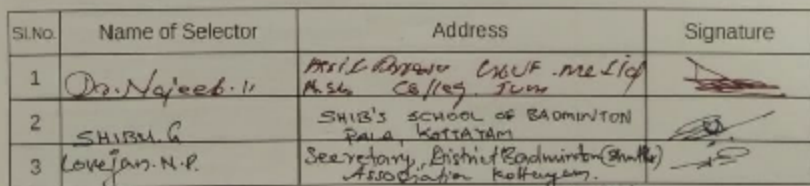 Sl.No. Name of Selector Address Signature
1 Dr. Najeeb. College
2 SHIBU. G SHIB'S SCHOOL OF BADMINTON
PALA, KOTTAYAM
3 Lovejan. N.P. Secretary, District Badminton (Shuttle)
Association Kottayam.